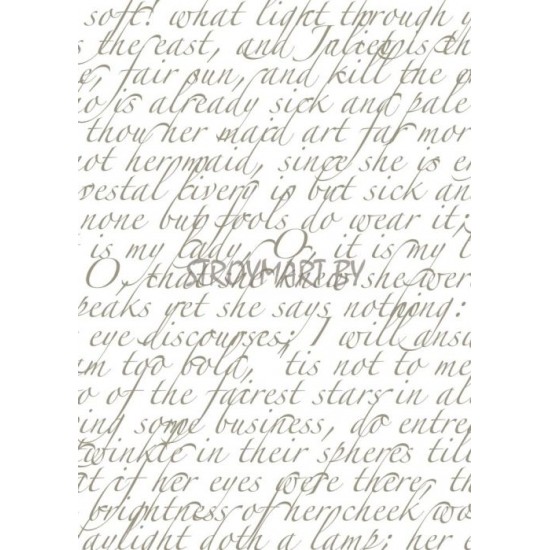 soft! what light through y
s the east, and Juliet is th
e, fair sun, and kill the
o is already sick and pale
thou her maid art far mor
ot her maid, since she is e
vestal livery is but sick an
none but fools do wear it;
is my lady, O, it is my l
O, that she knew she wer
peaks yet she says nothing:
eye discourses; I will answ
m too bold, 'tis not to me
o of the fairest stars in al
ing some business, do entre
twinkle in their spheres til
t if her eyes were there, th
brightness of her cheek wo
aylight doth a lamp; her e
STROYMART.BY